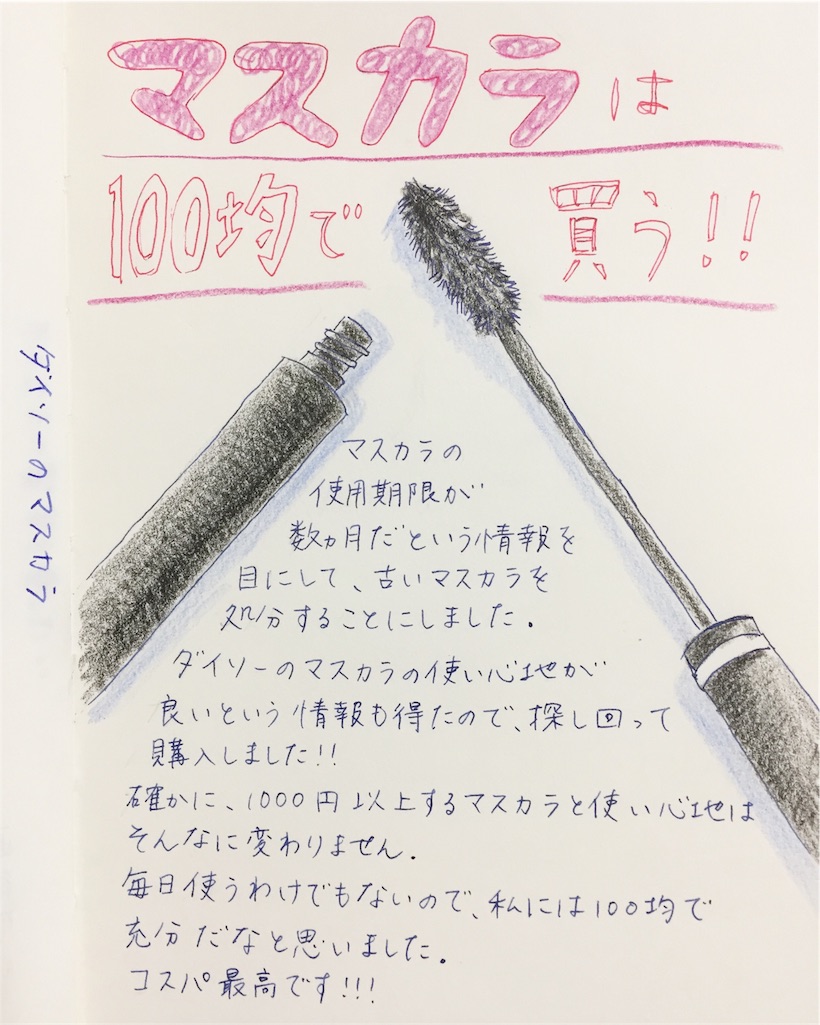 マスカラは
100均で 買う!!
マスカラの
使用期限が
数ヵ月だという情報を
目にして、古いマスカラを
処分することにしました。
ダイソーのマスカラの使い心地が
良いという情報も得たので、探し回って
購入しました!!
確かに、1000円以上するマスカラと使い心地は
そんなに変わりません。
毎日使うわけでもないので、私には100均で
充分だなと思いました。
コスパ最高です!!!
ダイソーのマスカラ